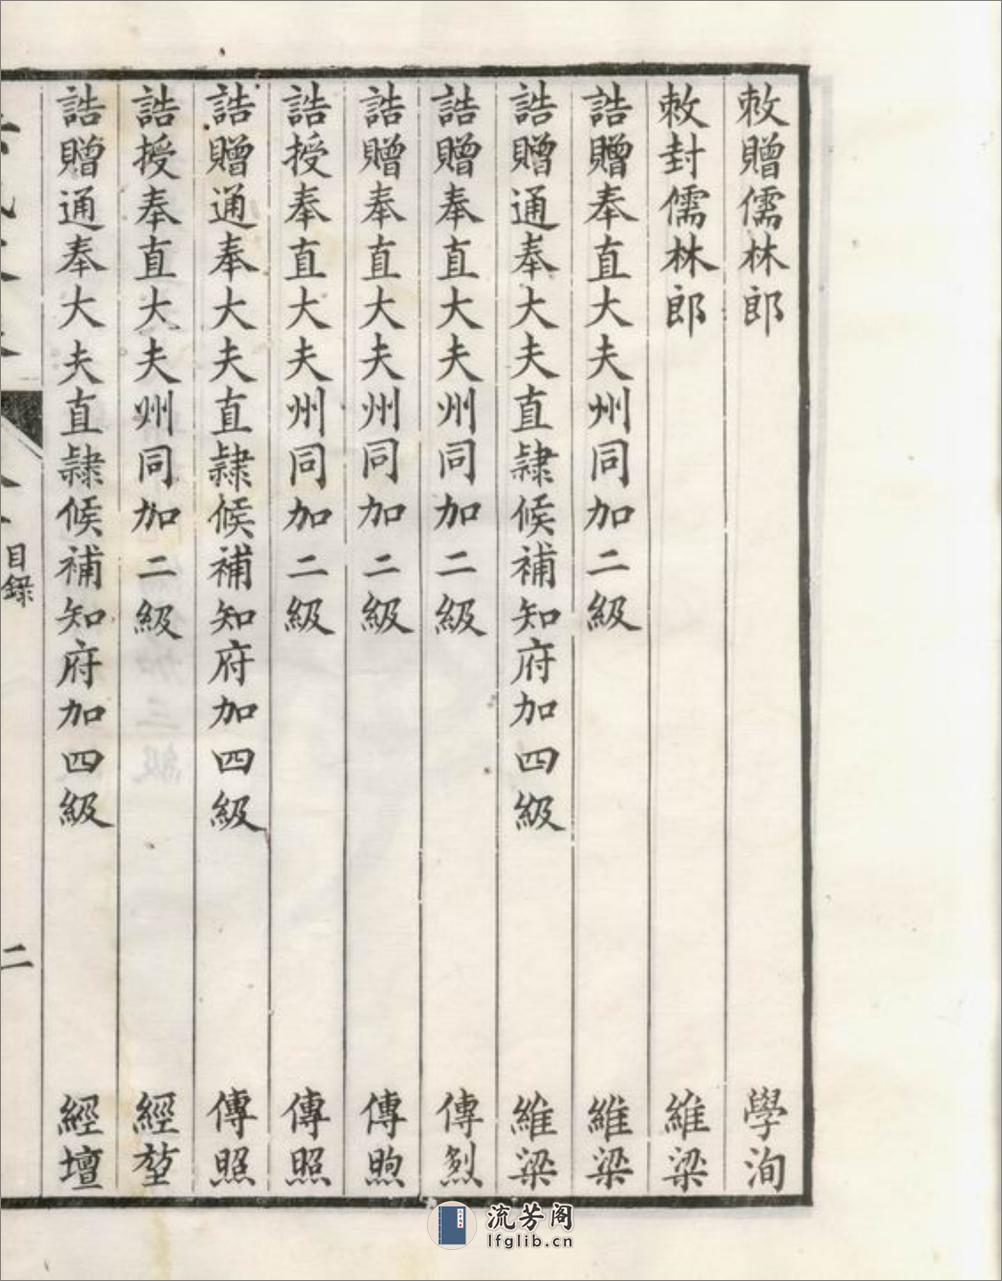 敕贈儒林郎 學洵
敕封儒林郎 維梁
誥贈奉直大夫州同加二級 維梁
誥贈通奉大夫直隸候補知府加四級 維梁
誥贈奉直大夫州同加二級 傳烈
誥贈奉直大夫州同加二級 傳煦
誥授奉直大夫州同加二級 傳照
誥贈通奉大夫直隸候補知府加四級 傳照
誥授奉直大夫州同加二級 經堃
誥贈通奉大夫直隸候補知府加四級 經壇
目錄
二
流芳阁
lfglib.cn